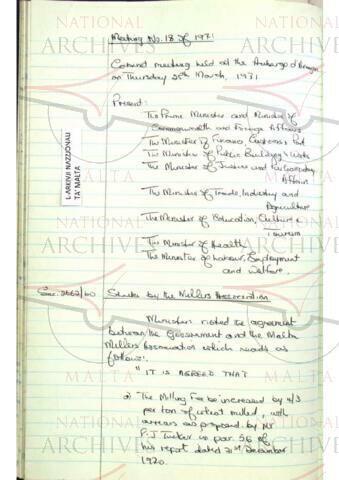 Meeting No. 18 of 1971
Cabinet meeting held at the Auberge d'Aragon
on Thursday 25th March, 1971
Present:
The Prime Minister and Minister of
Commonwealth and Foreign Affairs
The Minister of Finance, Customs & Port
The Minister of Public Building & Works
The Minister of Justice and Parliamentary
Affairs
The Minister of Trade, Industry and
Agriculture
The Minister of Education, Culture &
Tourism
The Minister of Health
The Minister of Labour, Employment
and Welfare.
L-ARKIVJI NAZZJONALI
TA' MALTA
Sec. 2662/60
by the Millers Association
Ministers noted the agreement
between the Government and the Malta
Millers Association which reads as
follows:
"IT IS AGREED THAT
a) The Milling Fee be increased by 4/3
per ton of wheat milled, with
arrears as proposed by Mr
P.J. in par. 56 of
his report dated 21st December
1970.
NATIONAL ARCHIVES